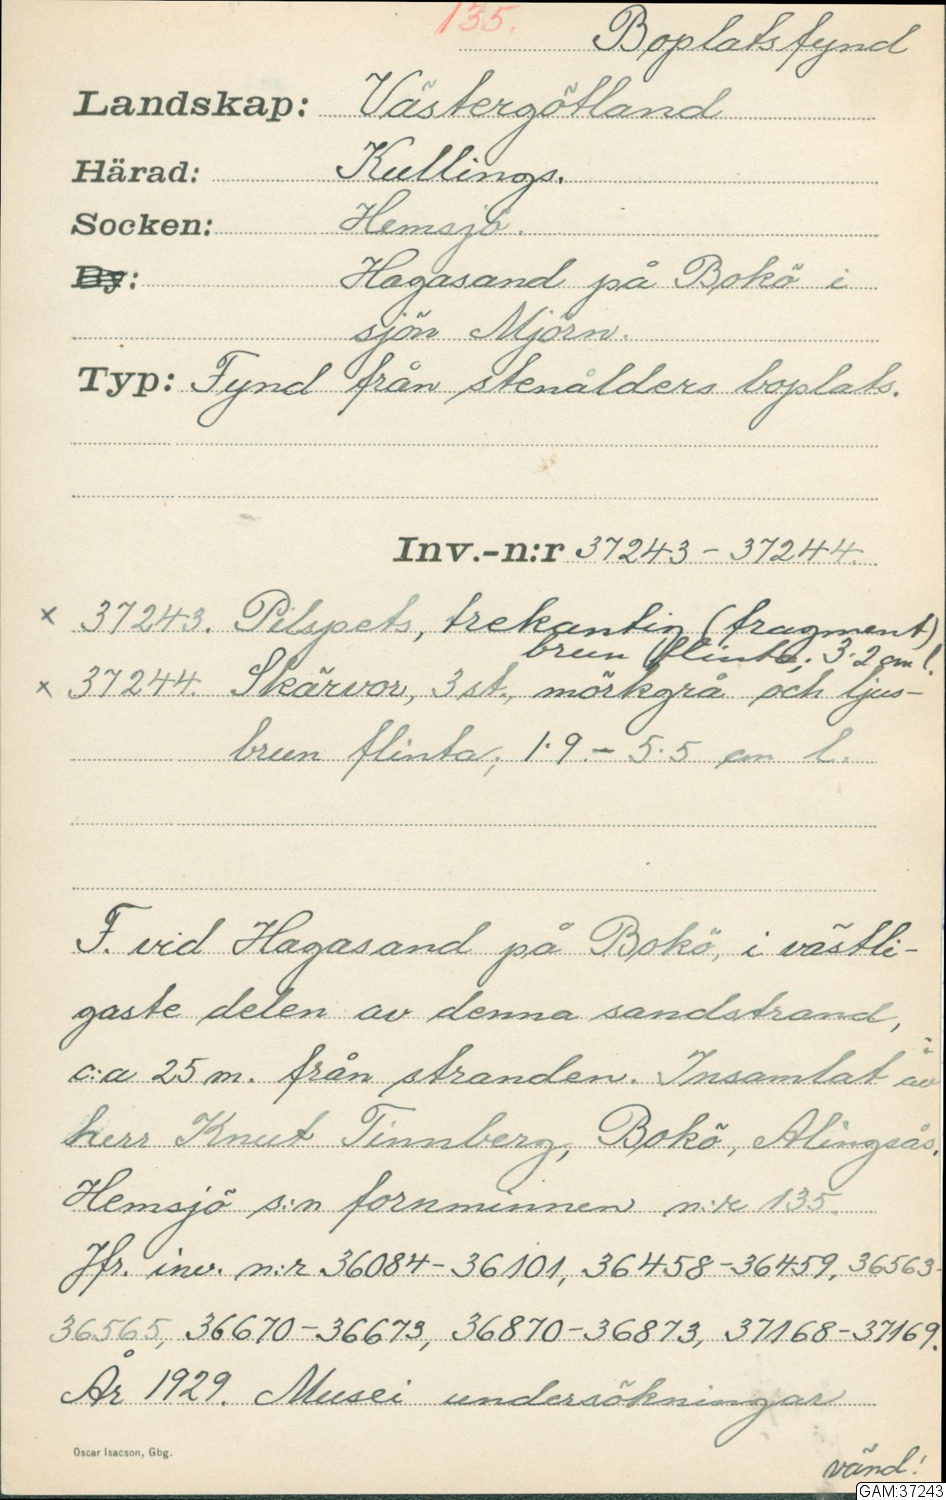 135.
Boplatsfynd
Landskap: Västergötland
Härad: Kullings.
Socken: Hemsjö.
By: Hagasand på Bokö i
sjön Mjörn.
Typ: Fynd från stenålders boplats.
Inv.-n:r 37243 - 37244.
x 37243. Pilspets, trekantig (fragment)
brun flinta; 3.2 cm l.
x 37244. Skärvor, 3 st., mörkgrå och ljus-
brun flinta; 1.9. - 5.5 cm l.
F. vid Hagasand på Bokö, i västli-
gaste delen av denna sandstrand,
c:a 25 m. från stranden. Insamlat av
herr Knut Tinnberg, Bokö, Alingsås.
Hemsjö s:n fornminnen n:r 135.
Jfr. inv. n:r 36084-36101, 36458-36459, 36563-
36565, 36670-36673, 36870-36873, 37168-37169.
År 1929. Musei undersökningar
Oscar Isacson, Gbg.
vänd!
GAM:37243